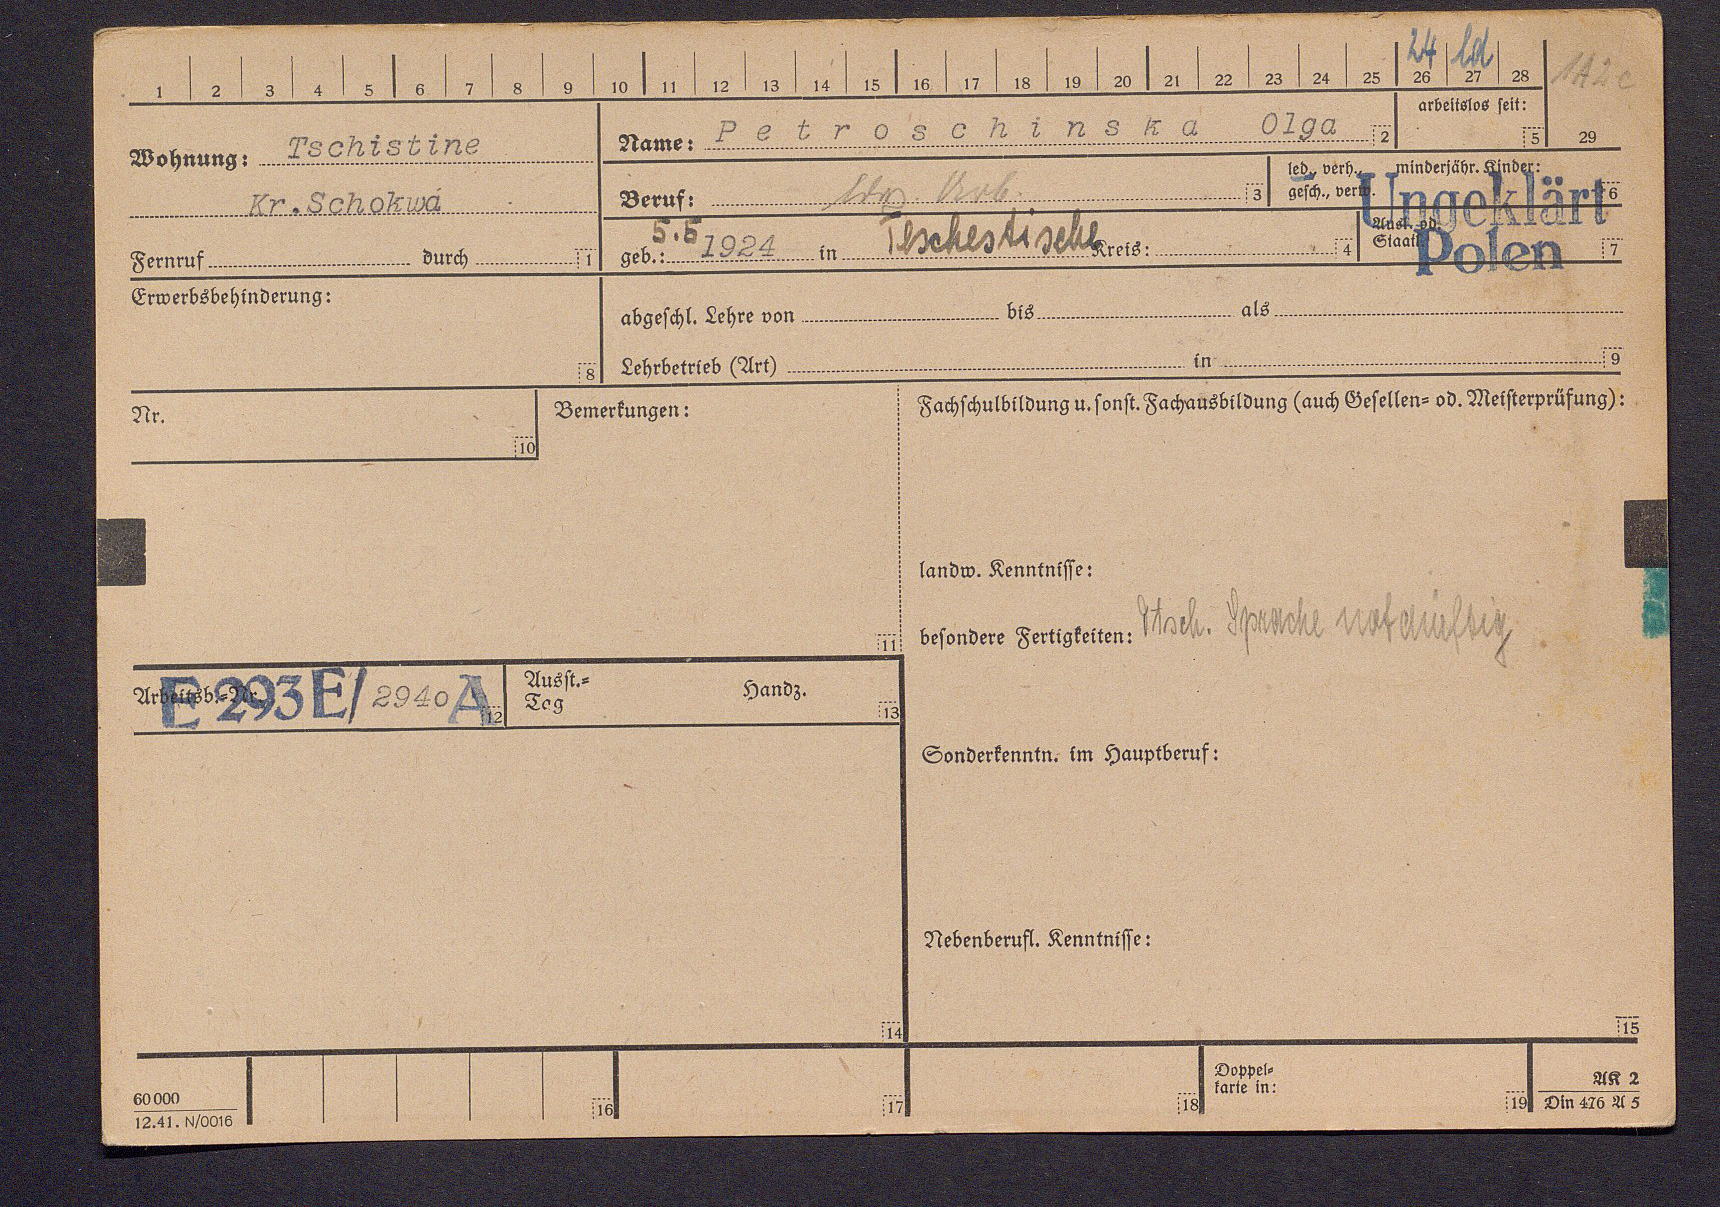 24 ld
1 2 3 4 5 6 7 8 9 10 11 12 13 14 15 16 17 18 19 20 21 22 23 24 25 26 27 28
1A2c
29
arbeitslos seit: 5
Wohnung: Tschistine
Name: Petroschinska Olga 2
Kr.Schokwá
Beruf: 3
led., verh., gesch., verw.
minderjähr. Kinder: 6
Ungeklärt
Fernruf durch 1
geb.: 5.5 1924 in Teschestische Kreis: 4
Ausl. od. Staatl. 7
Polen
Erwerbsbehinderung: 8
abgeschl. Lehre von bis als
Lehrbetrieb (Art) in 9
Nr. 10
Bemerkungen: 11
Fachschulbildung u. sonst. Fachausbildung (auch Gesellen= od. Meisterprüfung):
landw. Kenntnisse:
besondere Fertigkeiten: Dtsch. Sprache notdürftig
Arbeitsb.=Nr. E 293 E/ 2940 A 12
Ausst.= Tag Handz. 13
Sonderkenntn. im Hauptberuf:
Nebenberufl. Kenntnisse:
14
15
60 000
12.41. N/0016
16
17
18
Doppel=
karte in: 19
AK 2
Din 476 A 5